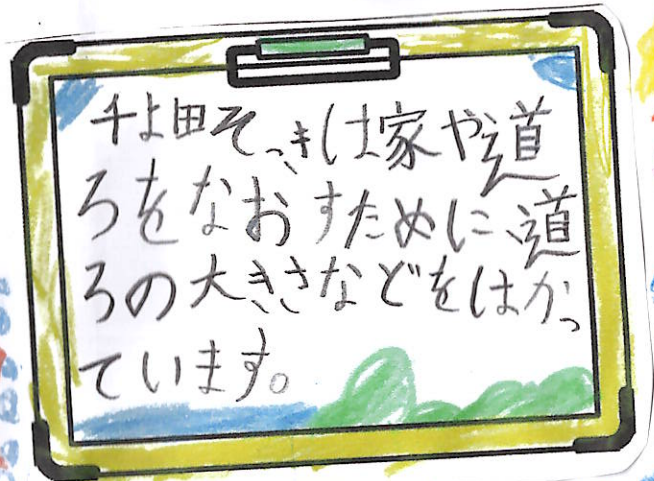 千よ田そっきは家や道
ろをなおすために、道
ろの大きさなどをはかっ
ています。